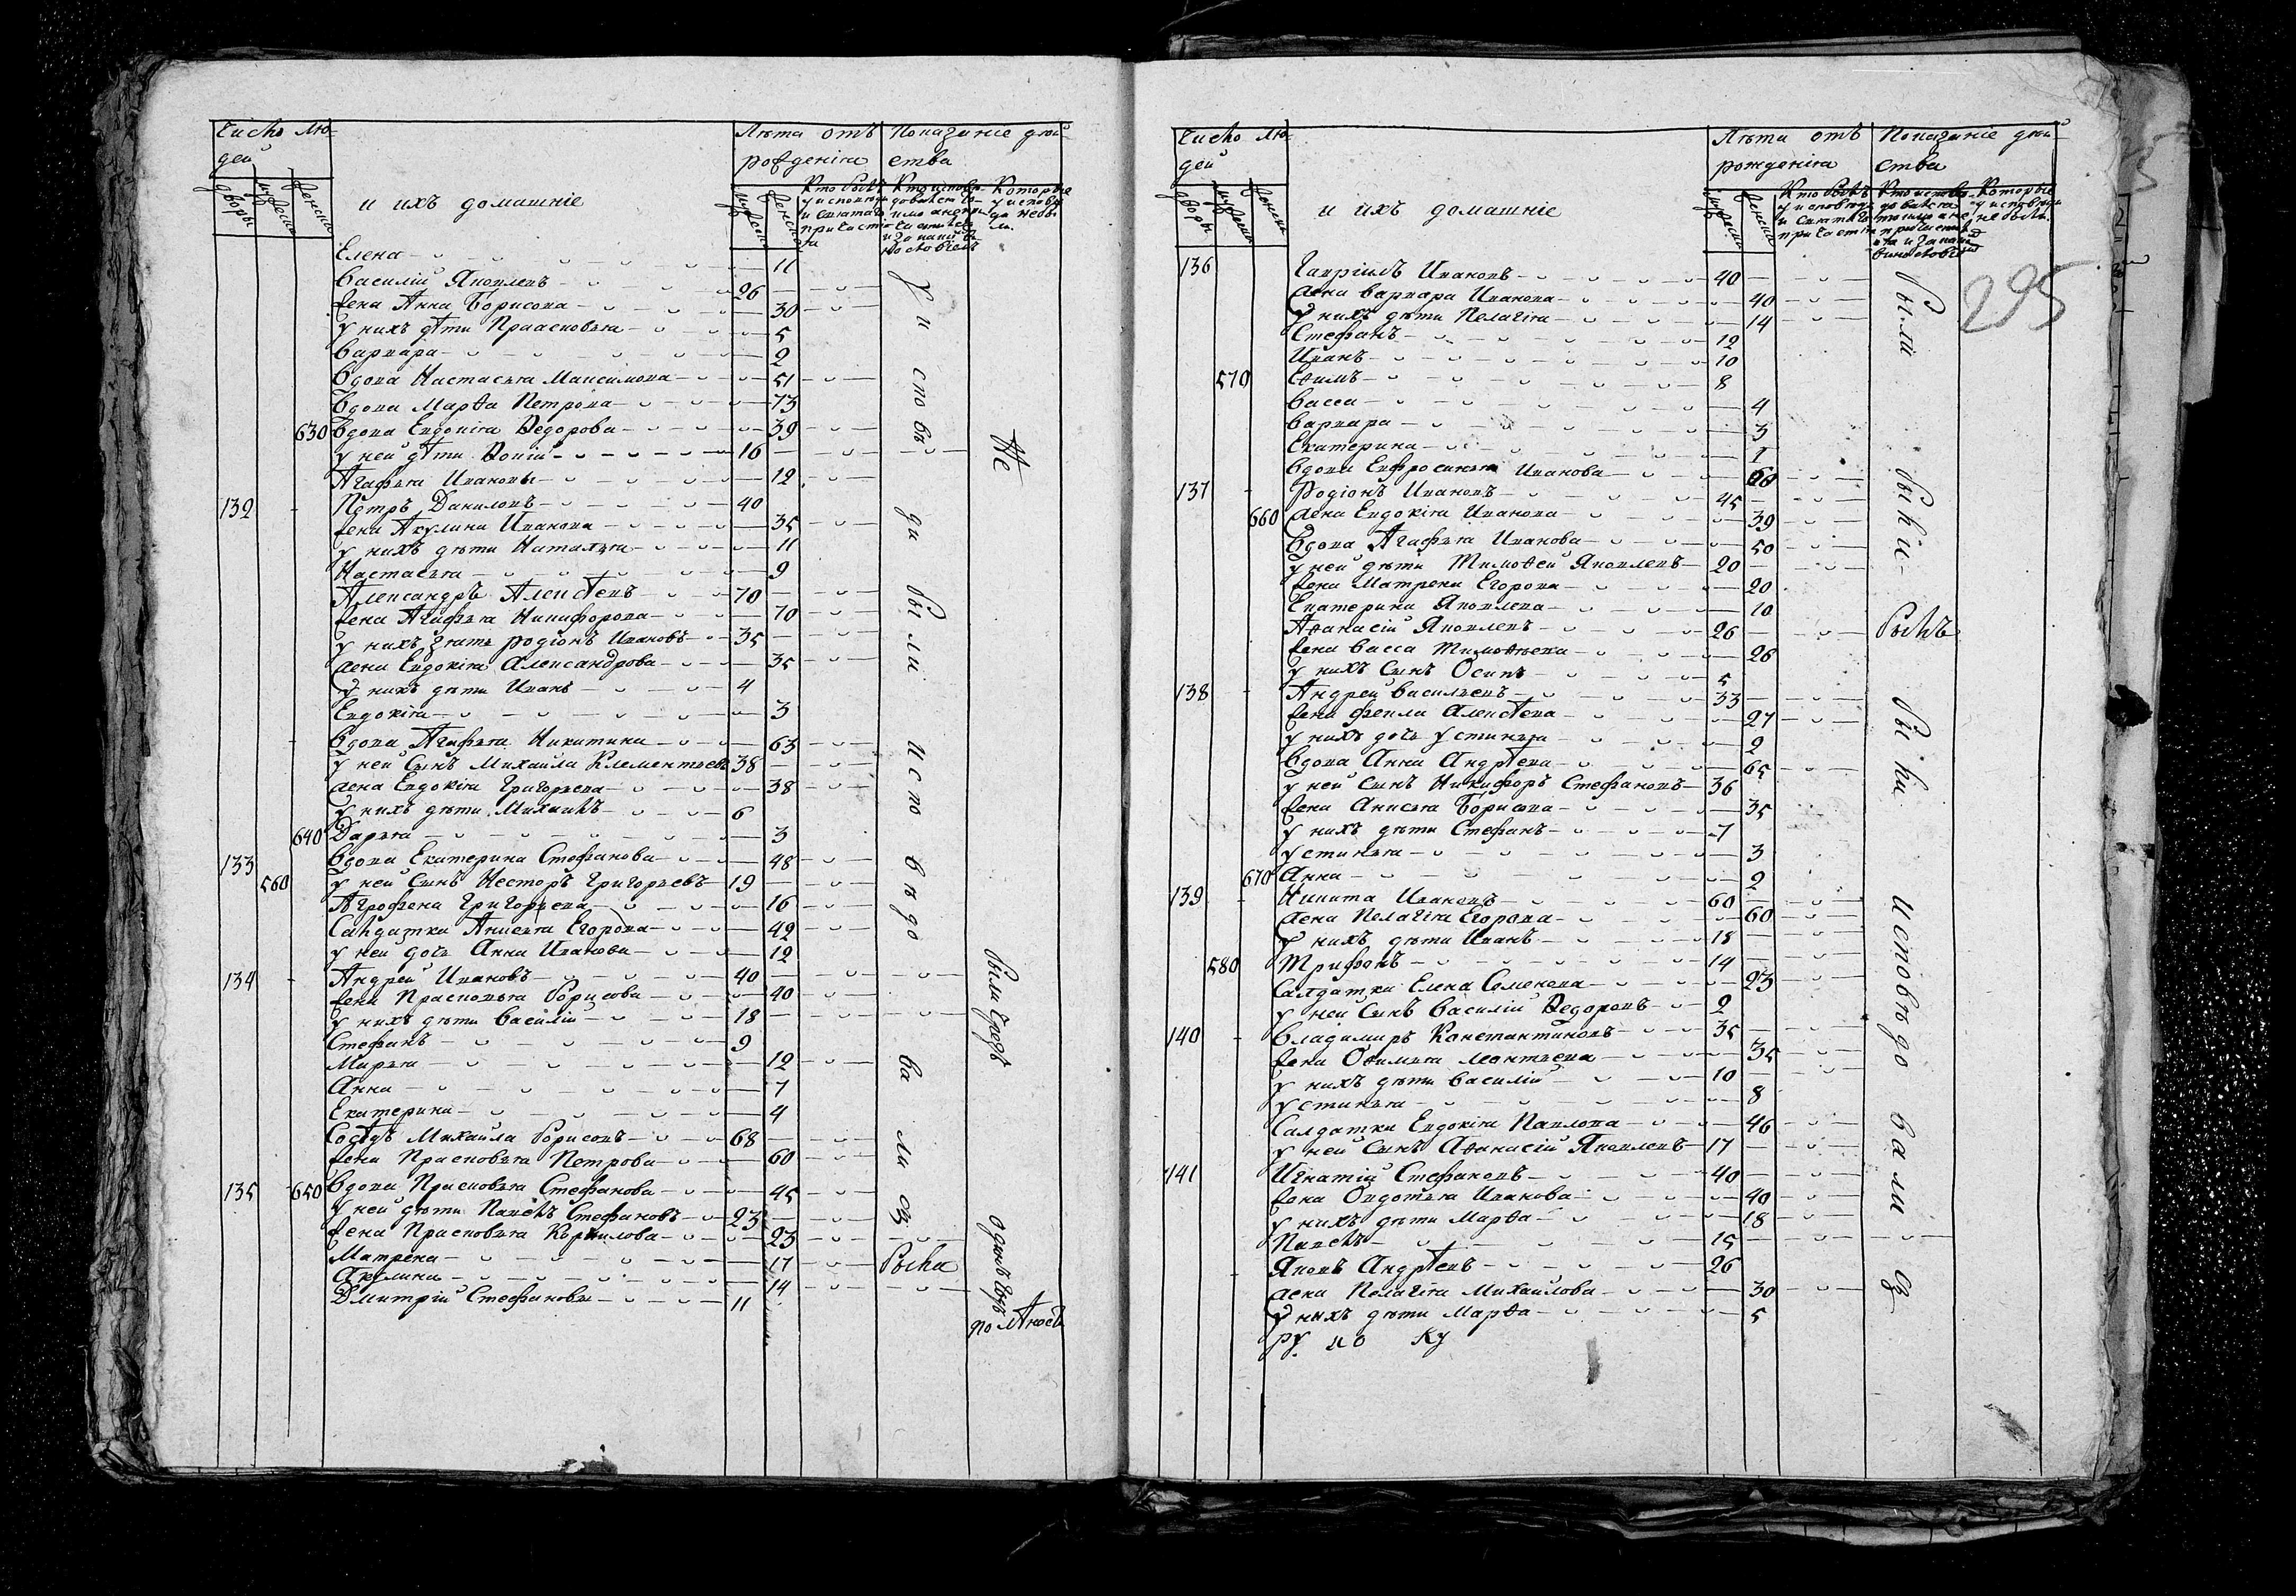 Число лю-
дей
дворы
мужеска
женска
и ихъ домашніе
Лѣта отъ
рожденія
мужеска
женска
Показаніе дѣй
ства
Кто былъ
у исповѣди
и святаго
причастія
Которые
у исповѣ
ди небы
ли.
Елена 11
Василій Яковлевъ 26
жена Анна Борисова 30
у нихъ дѣти Прасковья 5
Варвара 2
Вдова Настасья Максимова 51
Вдова Марѳа Петрова 73
630 Вдова Евдокія Ѳедорова 39
у ней дѣти 16
Агафья Ивановы 12
132 Петръ Даниловъ 40
жена Акулина Иванова 35
у нихъ дѣти Наталья 11
Настасья 9
Александръ Алексѣевъ 70
жена Агафья Никифорова 70
у нихъ зять Родіонъ Ивановъ 35
жена Евдокія Александрова 35
у нихъ дѣти Иванъ 4
Евдокія 3
Вдова Агафья Никитина 63
у ней сынъ Михайла Клементьевъ 38
жена Евдокія Григорьева 38
у нихъ дѣти Михаилъ 6
640 Дарья 3
133 Вдова Екатерина Стефанова 48
560 у ней сынъ Несторъ Григорьевъ 19
Агрофена Григорьева 16
Салдатка Анисья Егорова 42
у ней дочь Анна Иванова 12
134 Андрей Ивановъ 40
жена Прасковья Борисова 40
у нихъ дѣти Василій 18
Стефанъ 9
Марья 12
Анна 7
Екатерина 4
Сосѣдъ Михайла Борисовъ 68
жена Прасковья Петрова 60
135 650 Вдова Прасковья Стефанова 45
у ней дѣти Павелъ Стефановъ 23
жена Прасковья Корнилова 23
Матрена 17
Акулина 14
Дмитрій Стефановы 11
У и спо вѣ ди бы ли
Испо вѣдо ва ли сь
была
Не
были чрезъ
одинъ годъ
по лѣност
Число лю-
дей
дворы
мужеска
женска
и ихъ домашніе
Лѣта отъ
рожденія
мужеска
женска
Показаніе дѣй
ства
Кто былъ
у исповѣди
и святаго
причастія
Которые
у исповѣди
не были.
295
136 Гавріилъ Ивановъ 40
жена Варвара Иванова 40
у нихъ дѣти Пелагія 14
Стефанъ 12
Иванъ 10
570 Еѳимъ 8
Васса 4
Варвара 3
Екатерина 1
Вдова Евфросинья Иванова 60
137 Родіонъ Ивановъ 45
660 жена Евдокія Иванова 39
Вдова Агафья Иванова 50
у ней дѣти Тимоѳей Яковлевъ 20
жена Матрена Егорова 20
Екатерина Яковлева 10
Аѳанасій Яковлевъ 26
жена Васса Тимоѳеева 26
у нихъ сынъ Осипъ 5
138 Андрей Васильевъ 33
жена Фекла Алексѣева 27
у нихъ дочь Устинья 2
Вдова Анна Андрѣева 65
у ней сынъ Никифоръ Стефановъ 36
жена Анисья Борисова 35
у нихъ дѣти Стефанъ 7
Устинья 3
670 Анна 2
139 Никита Ивановъ 60
жена Пелагія Егорова 60
у нихъ дѣти Иванъ 18
580 Трифонъ 14
Салдатка Елена Семенова 23
у ней сынъ Василій Ѳедоровъ 2
140 Владимиръ Константиновъ 35
жена Оѳимья Леонтьева 35
у нихъ дѣти Василій 10
Устинья 8
Салдатка Евдокія Павлова 46
у ней сынъ Аѳанасій Яковлевъ 17
141 Игнатій Стефановъ 40
жена Овдотья Иванова 40
у нихъ дѣти Марѳа 18
Павелъ 15
Яковъ Андрѣевъ 26
жена Пелагія Михайлова 30
у нихъ дѣти Марѳа 5
ру ко ку
были
былъ
была
исповѣдо вали сь